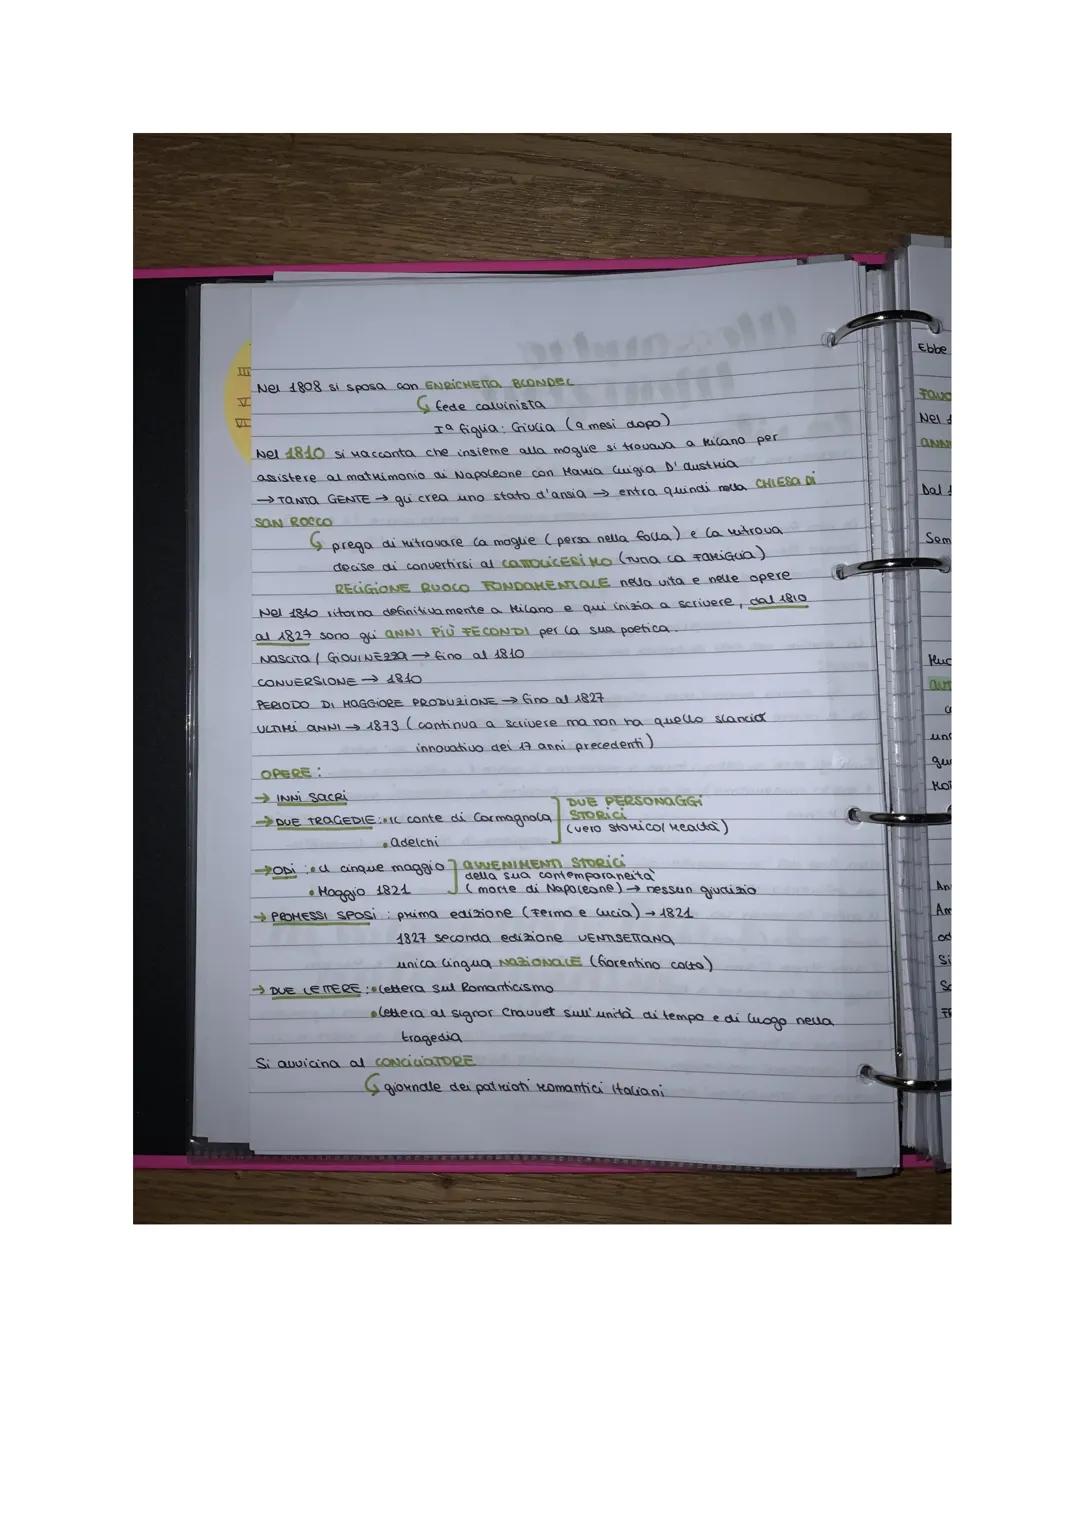 Nel 1808 si sposa con ENRICHETTA BLONDEL
fede calvinista
Iª figlia: Giulia (9 mesi dopo)
Nel 1810 si racconta che insieme alla moglie si trovava a Milano per
assistere al matrimonio di Napoleone con Maria Luigia D'Austria
→ TANTA GENTE → gli crea uno stato d'ansia → entra quindi nella CHIESA DI
SAN ROCCO
prega di ritrovare la moglie (persa nella folla) e la ritrova
decise di convertirsi al CATTOLICESIMO (TUTTA LA FAMIGLIA)
RELIGIONE RUOLO FONDAMENTALE nella vita e nelle opere
Nel 1810 ritorna definitivamente a Milano e qui inizia a scrivere, dal 1810
al 1827 sono gli ANNI PIÙ FECONDI per la sua poetica.
NASCITA / GIOVINEZZA → fino al 1810
CONVERSIONE → 1810
PERIODO DI MAGGIORE PRODUZIONE → fino al 1827
ULTIMI ANNI → 1873 (continua a scrivere ma non ha quello slancio
innovativo dei 17 anni precedenti)
OPERE:
→ INNI SACRI
→ DUE TRAGEDIE: • Il conte di Carmagnola
• Adelchi
DUE PERSONAGGI
STORICI
(vero storico/realtà)
→ ODI: • il cinque maggio
• Maggio 1821
AVVENIMENTI STORICI
della sua contemporaneità
(morte di Napoleone) → nessun giudizio
→ PROMESSI SPOSI: prima edizione (Fermo e Lucia) → 1821
1827 seconda edizione VENTISETTANA
unica lingua NAZIONALE (fiorentino colto)
→ DUE LETTERE: • lettera sul Romanticismo
• lettera al signor Chauvet sull'unità di tempo e di luogo nella
tragedia
Si avvicina al CONCILIATORE
giornale dei patrioti romantici italiani
III
V
VI
Ebbe
Nel
Dal
Sem